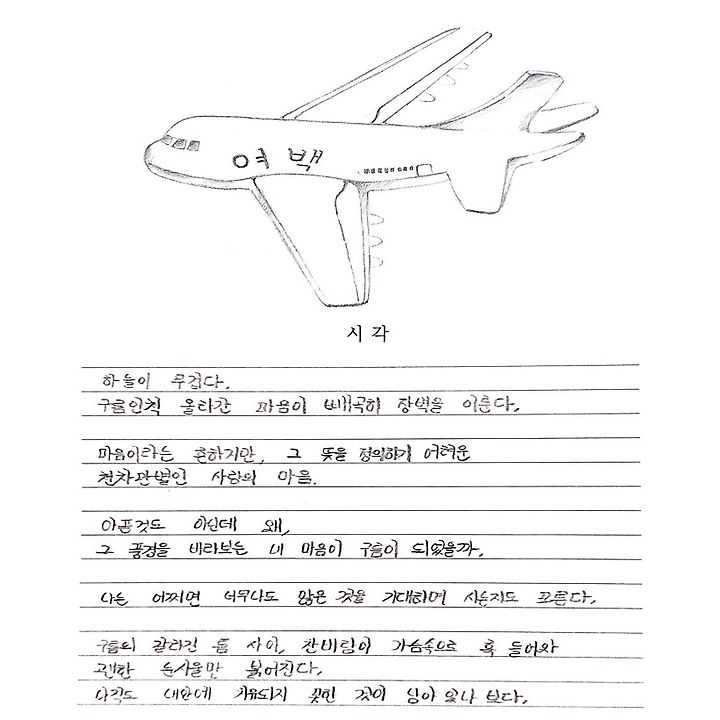 여백
시각
하늘이 무겁다.
구름인척 올라간 마음이 빼곡히 장벽을 이룬다.
마음이라는 흔하지만, 그 뜻을 정의하기 어려운
천차만별인 사람의 마음.
아픈것도 아닌데 왜,
그 풍경을 바라보는 내 마음이 구름이 되었을까.
나는 어쩌면 너무나도 많은 것을 기대하며 사는지도 모른다.
구름의 갈라진 틈 사이, 찬바람이 가슴속으로 훅 들어와
괜한 눈시울만 붉어진다.
아직도 내안에 치유되지 못한 것이 남아 있나 보다.